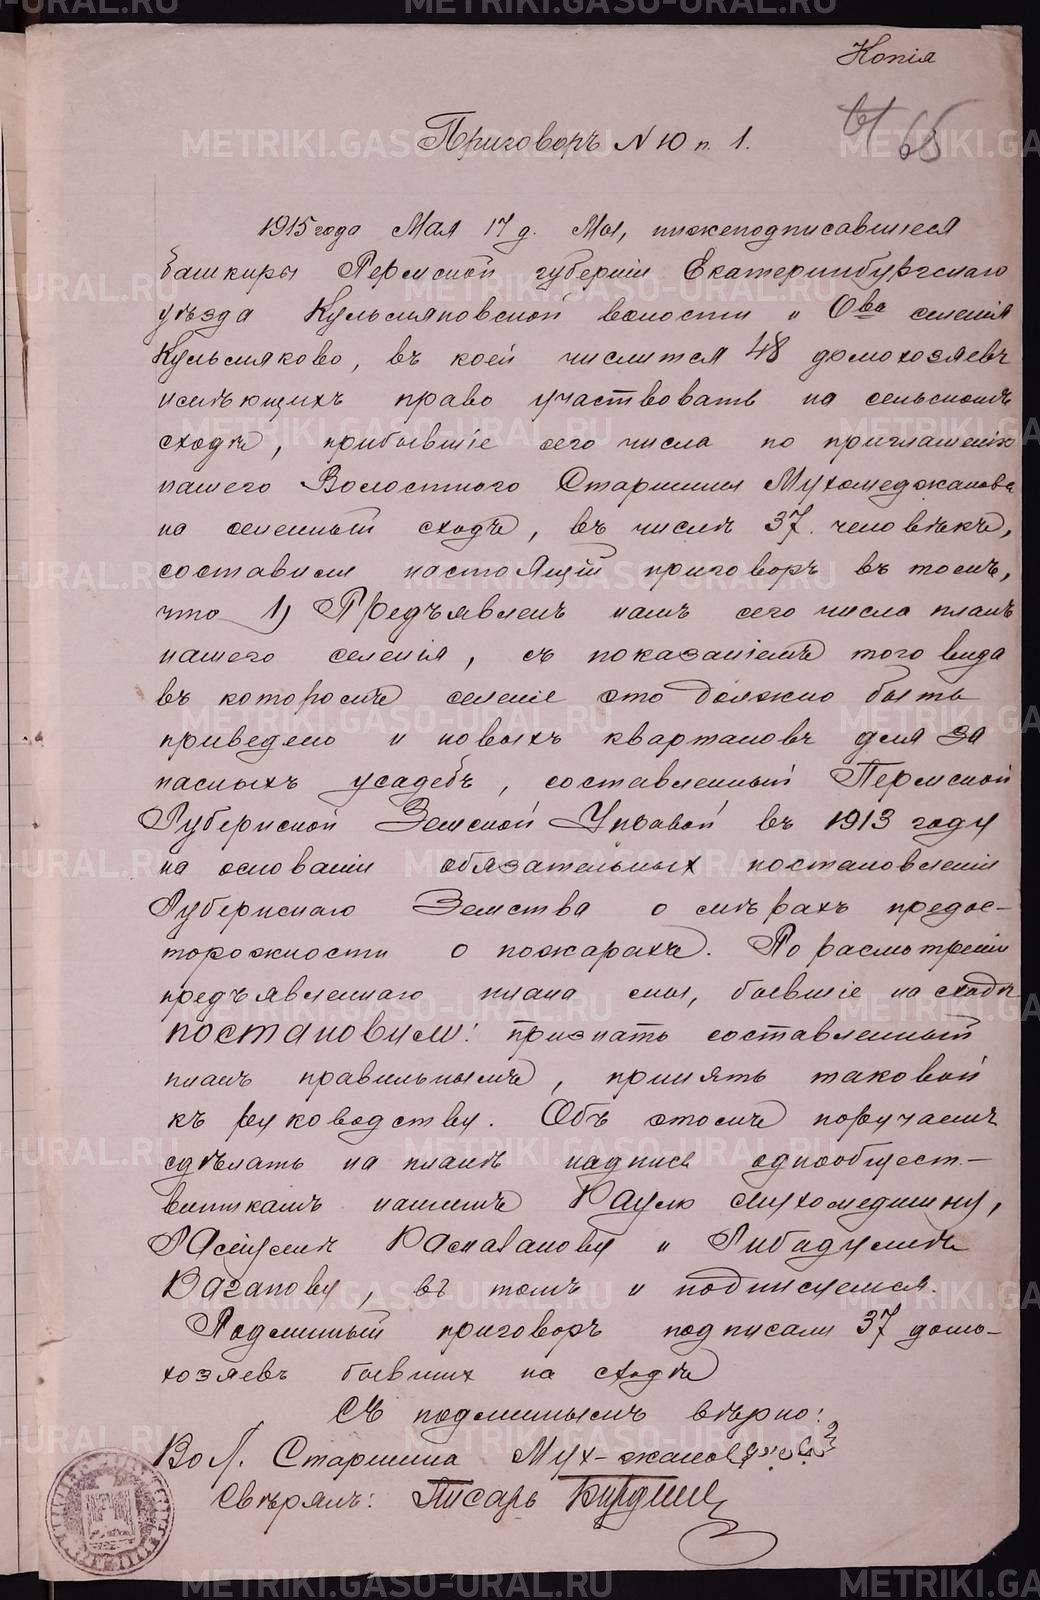 Копія
61 65
Приговоръ № 10 п. 1.
1915 года Мая 17 д. Мы, нижеподписавшиеся
башкиры Пермской губерніи Екатеринбургскаго
уѣзда Кульмяковской волости и Ова селенія
Кульмяково, въ коей числится 48 домохозяевъ
имѣющихъ право участвовать на сельскомъ
сходѣ, прибывшіе сего числа по приглашенію
нашего Волостного Старшины Мухомеджанова
на селенный сходъ, въ числѣ 37 человѣкъ,
составили настоящій приговоръ въ томъ,
что 1) Предъявленъ намъ сего числа планъ
нашего селенія, съ показаніемъ того вида
въ которомъ селеніе это должно быть
приведено и новыхъ кварталовъ для за
пасныхъ усадебъ, составленный Пермской
Губернской Земской Управой въ 1913 году
на основаніи обязательныхъ постановленій
Губернскаго Земства о мѣрахъ предос-
торожности о пожарахъ. По расмотреніи
предъявленнаго плана мы, бывшіе на сходѣ
постановили: признать составленный
планъ правильнымъ, принять таковой
къ руководству. Объ этомъ поручаемъ
сдѣлать на планѣ надпись однообщест-
венникамъ нашимъ Раулю Мухомедшину,
и Гибадулимъ
Вагапову, въ томъ и подписуемся.
Подлинный приговоръ подписали 37 домо-
хозяевъ бывшихъ на сходѣ
Съ подлинымъ вѣрно:
Вол. Старшина Мух-жанов
Свѣрялъ: Писарь
METRIKI.GASO-URAL.RU